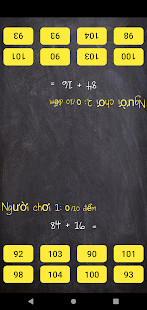 98 104 100 93
92 103 90 101
84 + 16 =
Người chơi 2: 0/10 đếm
Người chơi 1: 0/10 đếm
84 + 16 =
92 103 90 101
98 104 100 93